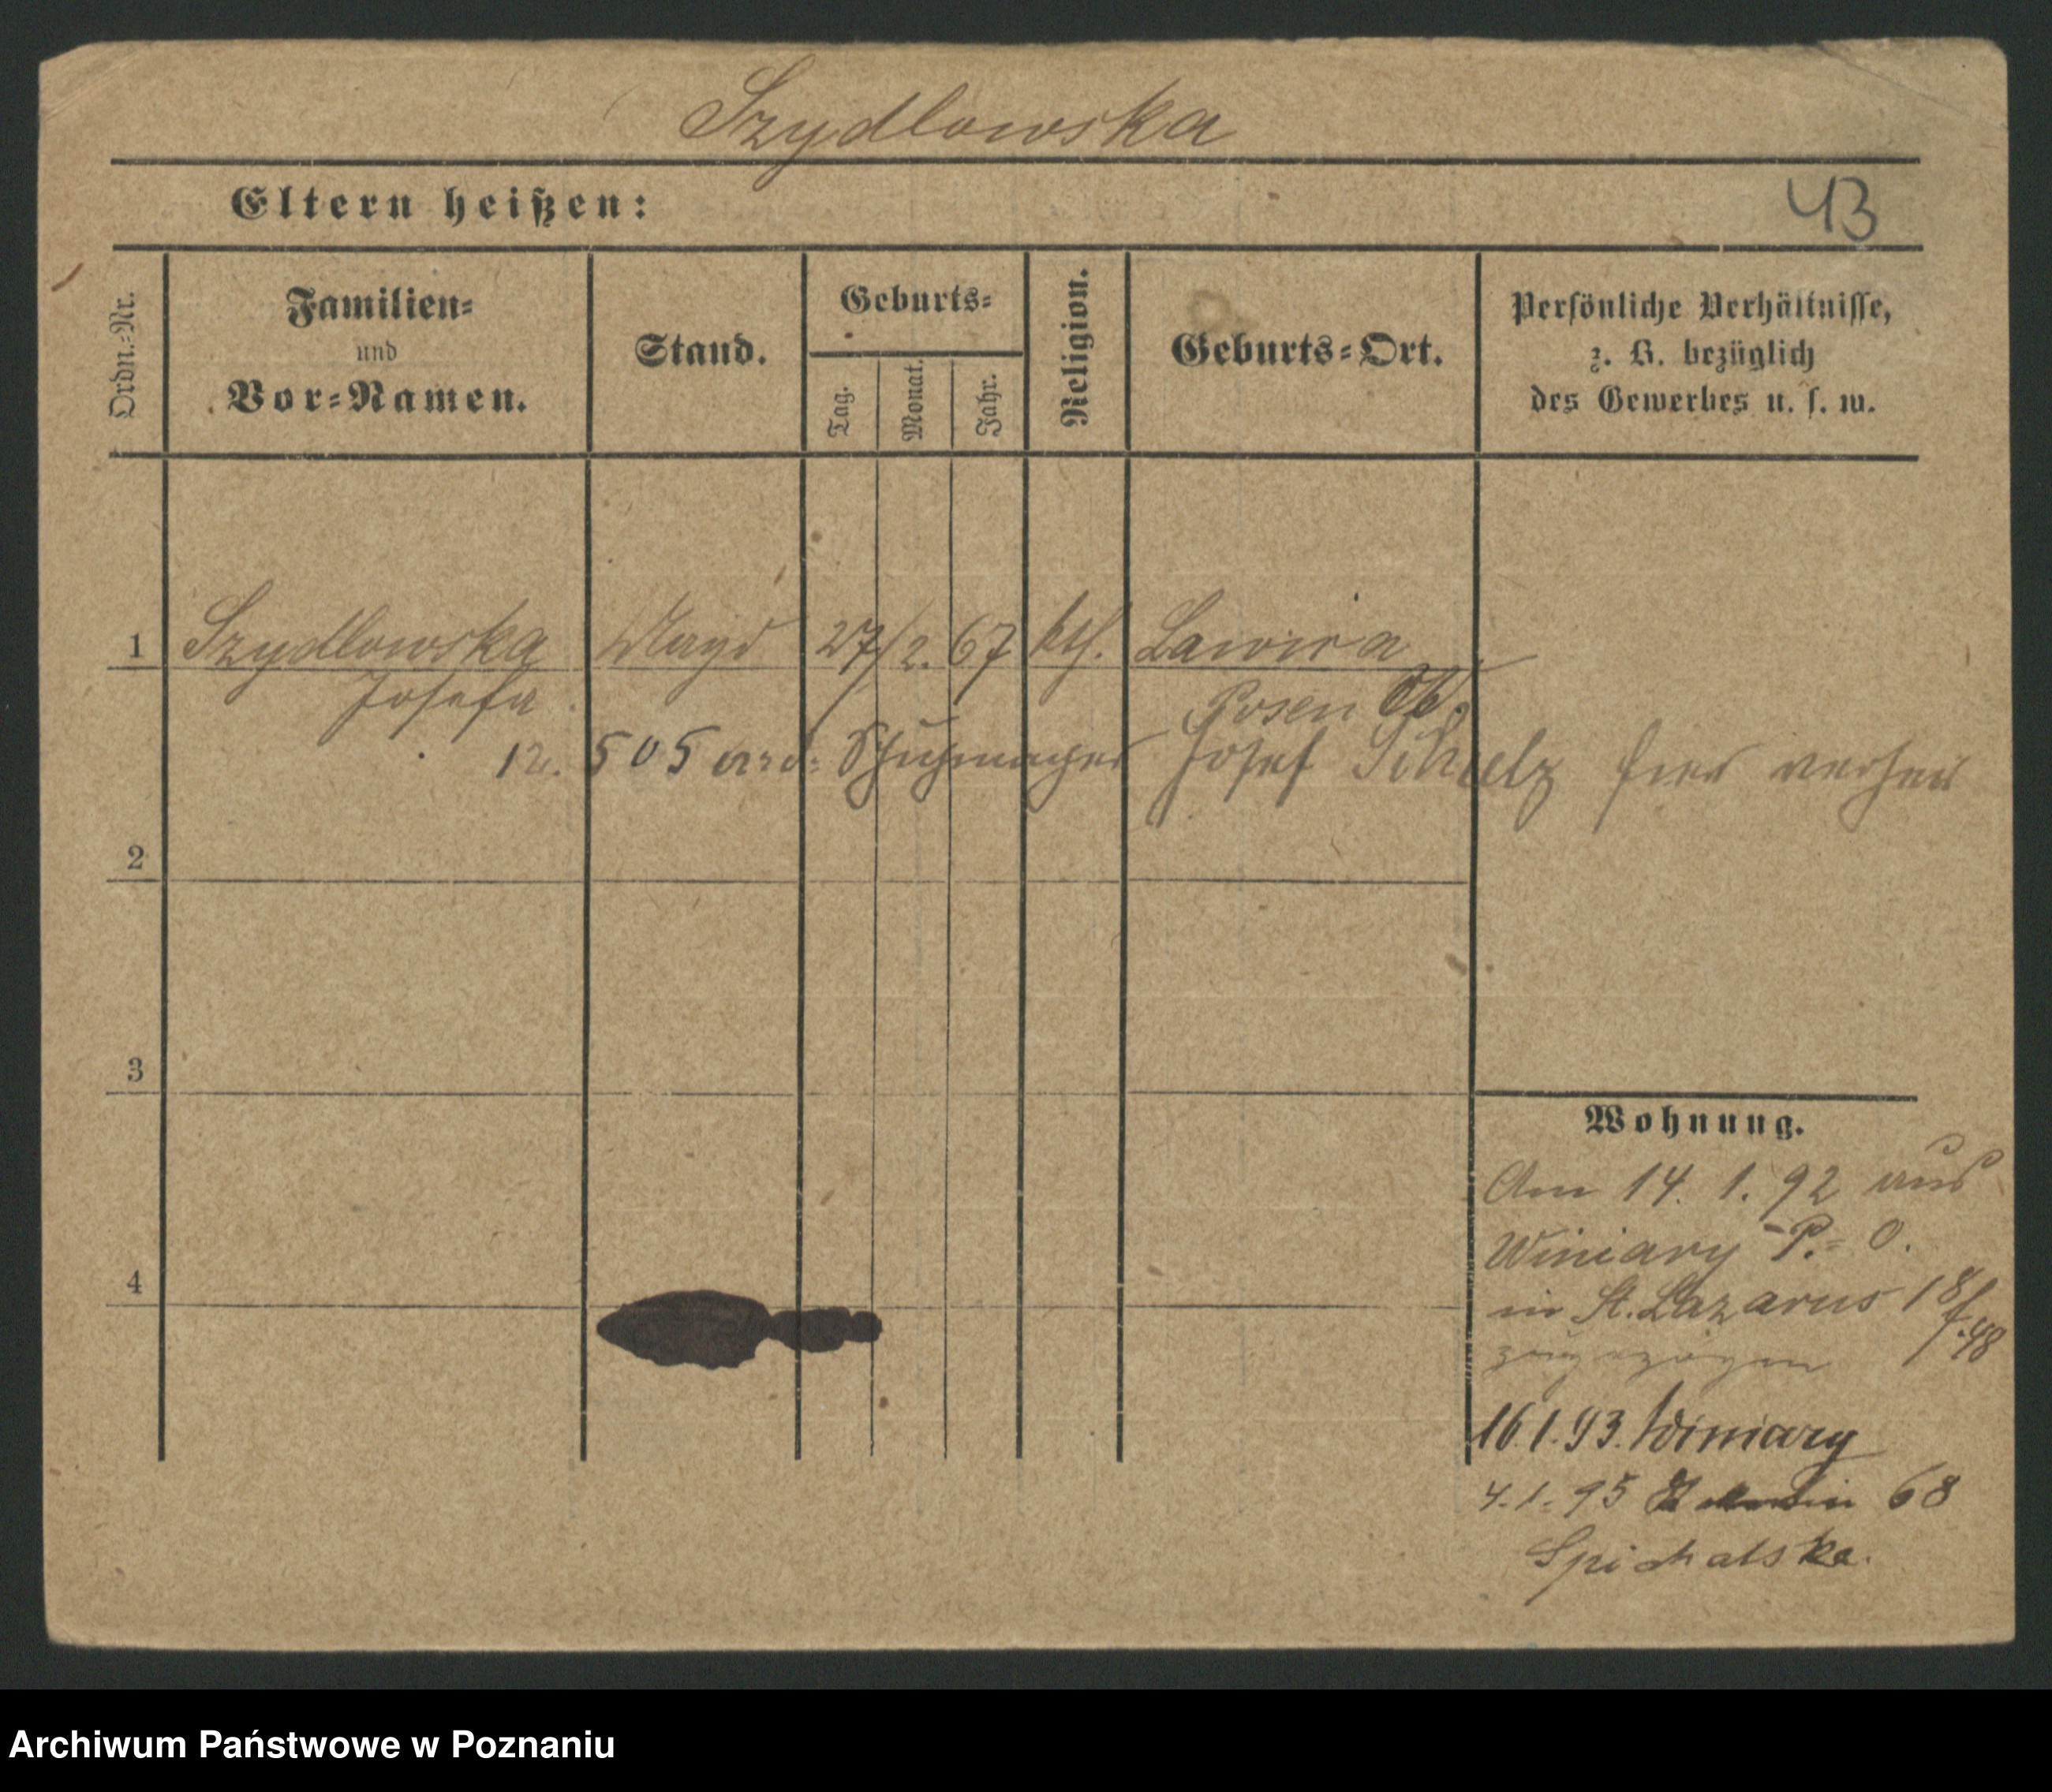 Szydlowska
Eltern heißen:
43
Ordn.-Nr.
Familien-
und
Vor-Namen.
Stand.
Geburts-
Tag.
Monat.
Jahr.
Religion.
Geburts-Ort.
Persönliche Verhältnisse,
z. B. bezüglich
des Gewerbes u. s. w.
1 Szydlowska Magd 27/2. 67 kth. Lawica
Josefa
Posen
12. 505 Schuhmacher Josef Schulz hier
2
3
4
Wohnung.
Am 14. 1. 92 aus
Winiary P.-O.
in St. Lazarus 18
zugezogen
16.1.93. Winiary
4.1.95 68
Spichalska.
Archiwum Państwowe w Poznaniu